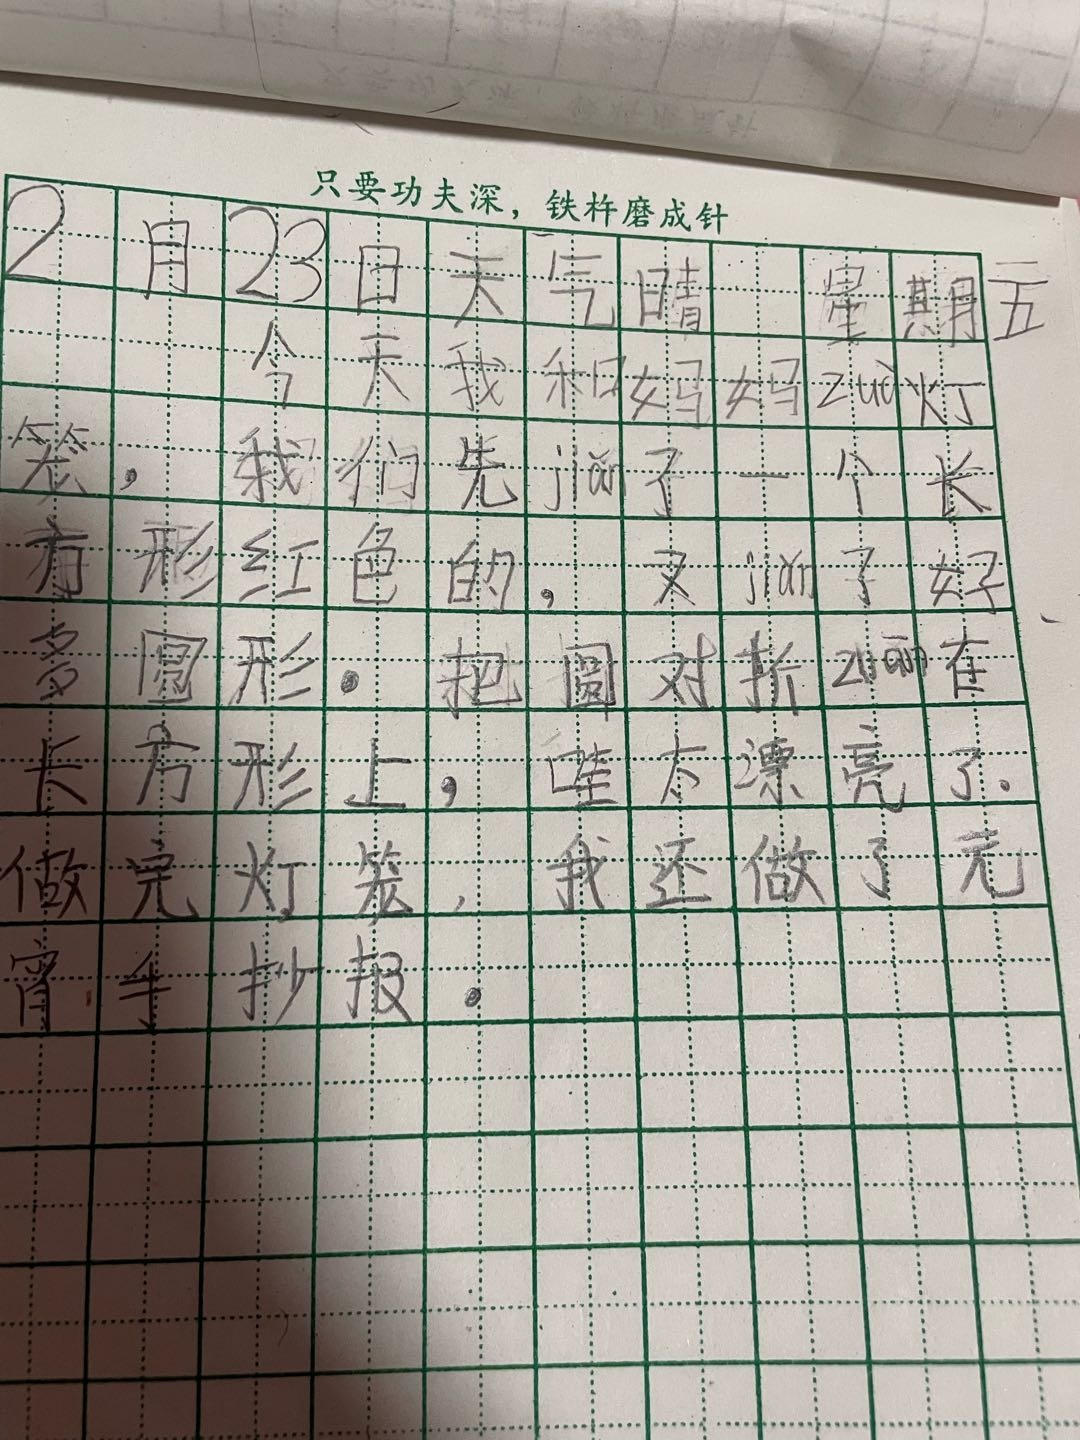 只要功夫深，铁杵磨成针
2月23日天气晴 星期五
今天我和妈妈zuò灯
笼，我们先jiǎn了一个长
方形红色的，又jiǎn了好
多圆形。把圆对折zuān在
长方形上，哇太漂亮了.
做完灯笼，我还做了元
宵手抄报。